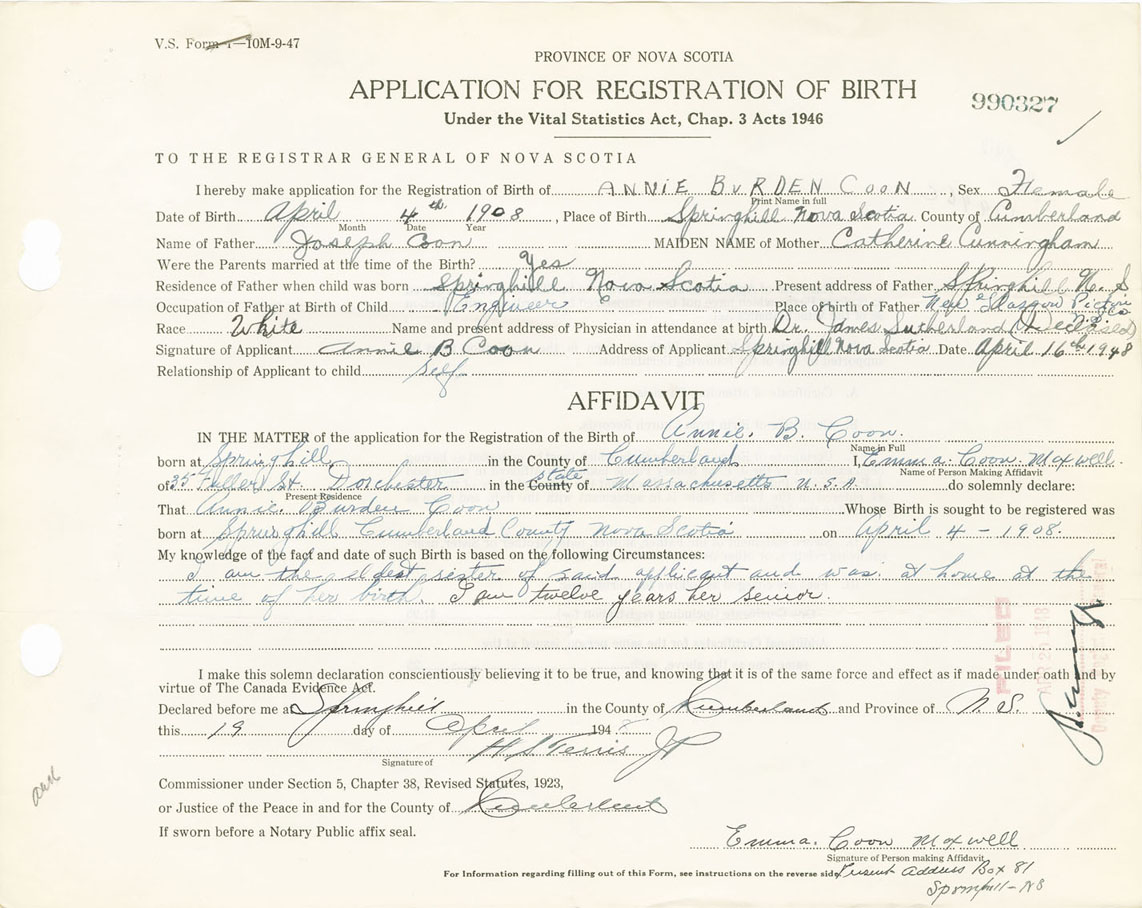 V.S. Form 1—10M-9-47
PROVINCE OF NOVA SCOTIA
APPLICATION FOR REGISTRATION OF BIRTH
990327
Under the Vital Statistics Act, Chap. 3 Acts 1946
TO THE REGISTRAR GENERAL OF NOVA SCOTIA
I hereby make application for the Registration of Birth of ANNIE BURDEN COON, Sex Female
Print Name in full
Date of Birth April 4th 1908, Place of Birth Springhill Nova Scotia County of Cumberland
Month Date Year
Name of Father Joseph Coon MAIDEN NAME of Mother Catherine Cunningham
Were the Parents married at the time of the Birth? Yes
Residence of Father when child was born Springhill Nova Scotia Present address of Father Springhill N. S
Occupation of Father at Birth of Child Engineer Place of birth of Father New Glasgow Pictou Co N.S.
Race White Name and present address of Physician in attendance at birth Dr. James Sutherland (Deceased)
Signature of Applicant Annie B Coon Address of Applicant Springhill Nova Scotia Date April 16th 1948
Relationship of Applicant to child Self
AFFIDAVIT
IN THE MATTER of the application for the Registration of the Birth of Annie. B. Coon.
Name in Full
born at Springhill in the County of Cumberland I, Emma. Coon. Maxwell.
Name of Person Making Affidavit
of 35 Fuller St. Dorchester in the County state of Massachusetts U.S.A. do solemnly declare:
Present Residence
That Annie Burden Coon Whose Birth is sought to be registered was
born at Springhill Cumberland County Nova Scotia on April 4 - 1908.
My knowledge of the fact and date of such Birth is based on the following Circumstances:
I am the eldest sister of said applicant and was at home at the
time of her birth. I am twelve years her senior.
I make this solemn declaration conscientiously believing it to be true, and knowing that it is of the same force and effect as if made under oath and by
virtue of The Canada Evidence Act.
Declared before me at Springhill in the County of Cumberland and Province of N.S.
this 19 day of April 1948
H S Terris JP
Signature of
Commissioner under Section 5, Chapter 38, Revised Statutes, 1923,
or Justice of the Peace in and for the County of Cumberland
If sworn before a Notary Public affix seal.
Emma. Coon Maxwell
Signature of Person making Affidavit
For Information regarding filling out of this Form, see instructions on the reverse side
Present Address Box 81
Springhill - NS
FILED